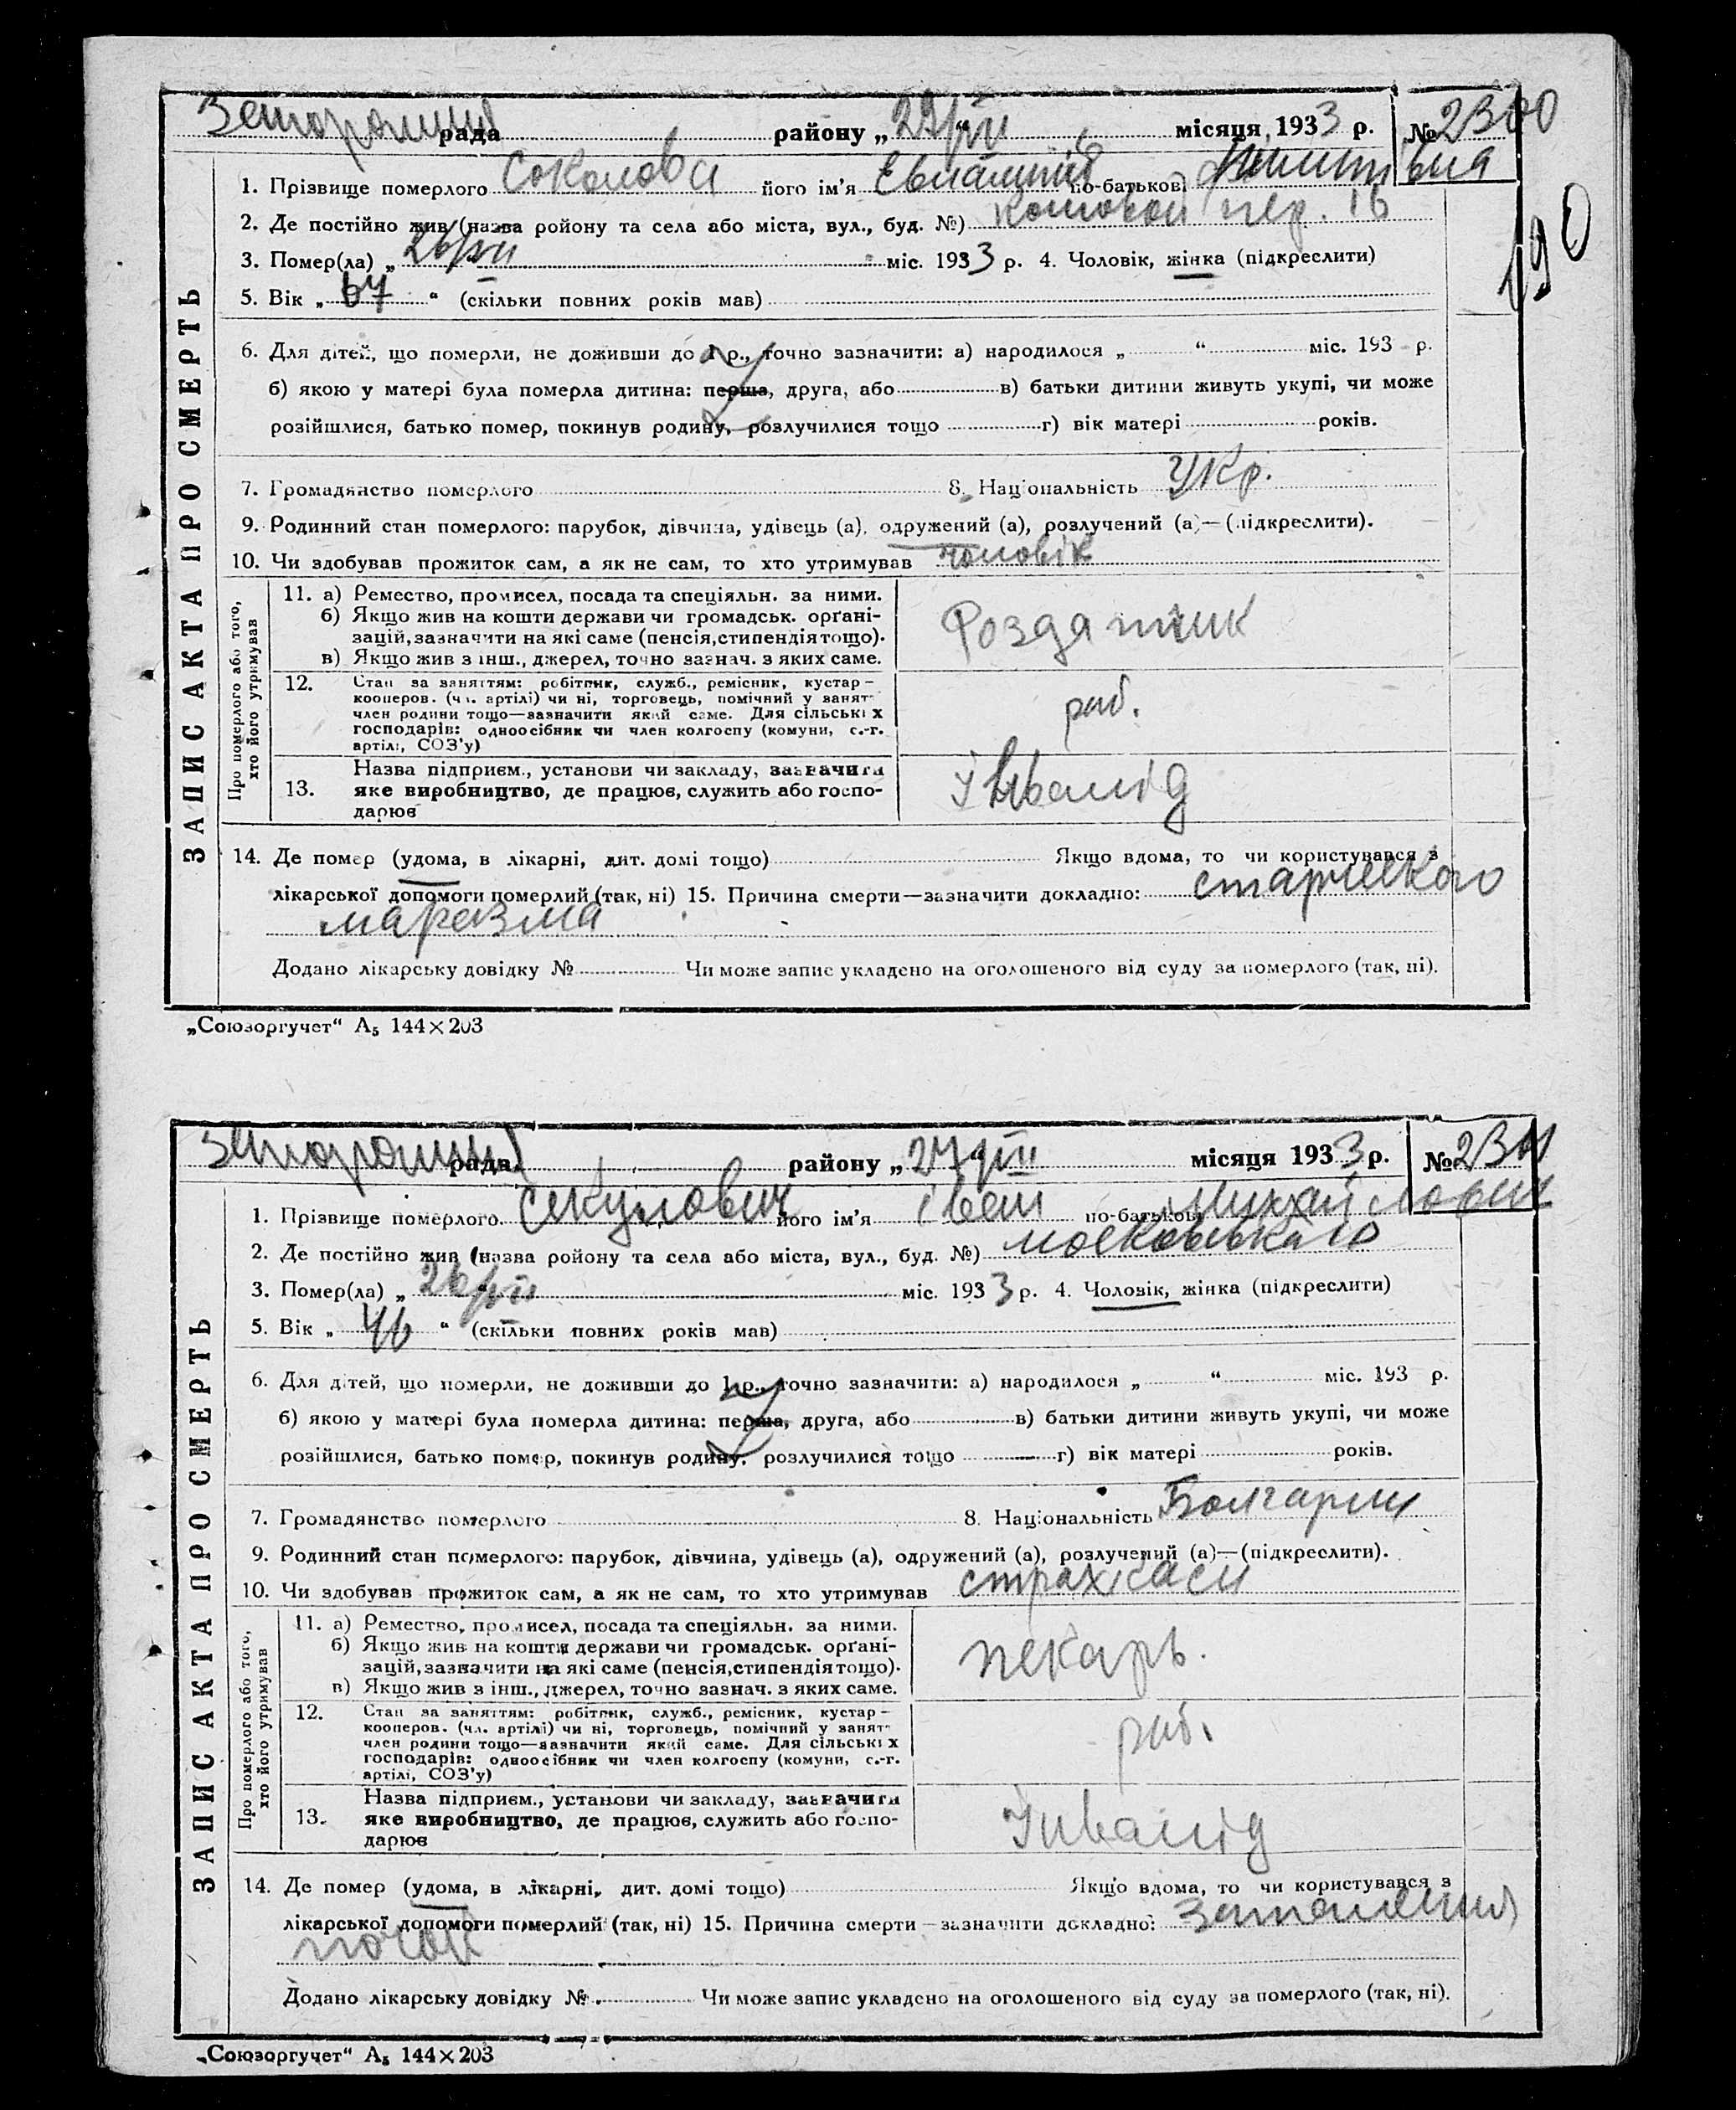 рада району „29/VII“ місяця 1933 р. № 2300
1. Прізвище померлого Соколова його ім’я по-батькові
2. Де постійно жив (назва ройону та села або міста, вул., буд. №) пер. 16
3. Помер(ла) „26/VII міс. 1933 р. 4. Чоловік, жінка (підкреслити)
190
5. Вік „67“ (скільки повних років мав)
6. Для дітей, що померли, не доживши до 1 р., точно зазначити: а) народилося „ “ міс. 193 р.
б) якою у матері була померла дитина: перша, друга, або в) батьки дитини живуть укупі, чи може
розійшлися, батько помер, покинув родину, розлучилися тощо г) вік матері років.
7. Громадянство померлого 8. Національність Укр.
9. Родинний стан померлого: парубок, дівчина, удівець (а), одружений (а), розлучений (а)—(підкреслити).
10. Чи здобував прожиток сам, а як не сам, то хто утримував чоловік
ЗАПИС АКТА ПРО СМЕРТЬ
Про померлого або того,
хто його утримував
11. а) Ремество, промисел, посада та спеціяльн. за ними.
б) Якщо жив на кошти держави чи громадськ. орґані-
зацій, зазначити на які саме (пенсія, стипендія тощо).
в) Якщо жив з інш., джерел, точно зазнач. з яких саме.
Роздатчик
12. Стан за заняттям: робітник, служб., ремісник, кустар–
кооперов. (чл. артілі) чи ні, торговець, помічний у занят–
член родини тощо—зазначити який саме. Для сільських
господарів: одноосібник чи член колгоспу (комуни, с.-г.
артілі, СОЗ’у)
раб.
13. Назва підприєм., установи чи закладу, зазначити
яке виробництво, де працює, служить або госпо-
дарює
Інвалід
14. Де помер (удома, в лікарні, дит. домі тощо) Якщо вдома, то чи користувався з
лікарської допомоги померлий (так, ні) 15. Причина смерти—зазначити докладно: старческого
маразма
Додано лікарську довідку № Чи може запис укладено на оголошеного від суду за померлого (так, ні).
„Союзоргучет“ А₅ 144×203
рада району „27/VII“ місяця 1933 р. № 2301
1. Прізвище померлого Секулович його ім’я Іван по-батькові Михайлович
2. Де постійно жив (назва ройону та села або міста, вул., буд. №) Московська 10
3. Помер(ла) „26/VII міс. 1933 р. 4. Чоловік, жінка (підкреслити)
5. Вік „46“ (скільки повних років мав)
6. Для дітей, що померли, не доживши до 1 р., точно зазначити: а) народилося „ “ міс. 193 р.
б) якою у матері була померла дитина: перша, друга, або в) батьки дитини живуть укупі, чи може
розійшлися, батько помер, покинув родину, розлучилися тощо г) вік матері років.
7. Громадянство померлого 8. Національність Болгарин
9. Родинний стан померлого: парубок, дівчина, удівець (а), одружений (а), розлучений (а)—(підкреслити).
10. Чи здобував прожиток сам, а як не сам, то хто утримував страхкаси
ЗАПИС АКТА ПРО СМЕРТЬ
Про померлого або того,
хто його утримував
11. а) Ремество, промисел, посада та спеціяльн. за ними.
б) Якщо жив на кошти держави чи громадськ. орґані-
зацій, зазначити на які саме (пенсія, стипендія тощо).
в) Якщо жив з інш., джерел, точно зазнач. з яких саме.
пекарь.
12. Стан за заняттям: робітник, служб., ремісник, кустар–
кооперов. (чл. артілі) чи ні, торговець, помічний у занят–
член родини тощо—зазначити який саме. Для сільських
господарів: одноосібник чи член колгоспу (комуни, с.-г.
артілі, СОЗ’у)
раб.
13. Назва підприєм., установи чи закладу, зазначити
яке виробництво, де працює, служить або госпо-
дарює
Інвалід
14. Де помер (удома, в лікарні, дит. домі тощо) Якщо вдома, то чи користувався з
лікарської допомоги померлий (так, ні) 15. Причина смерти—зазначити докладно:
Додано лікарську довідку № Чи може запис укладено на оголошеного від суду за померлого (так, ні).
„Союзоргучет“ А₅ 144×203